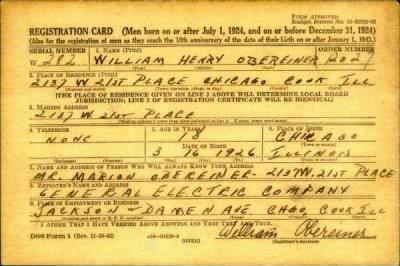 FORM APPROVED
REGISTRATION CARD (Men born on or after July 1, 1924, and on or before December 31, 1924)
(Also for the registration of men as they reach the 18th anniversary of the date of their birth on or after January 1, 1925.)
SERIAL NUMBER 1. NAME (Print) ORDER NUMBER
W 282 WILLIAM HENRY OBEREINER
(First) (Middle) (Last)
2. PLACE OF RESIDENCE (Print)
2137 W 21ST PLACE CHICAGO COOK ILL
[THE PLACE OF RESIDENCE GIVEN ON LINE 2 ABOVE WILL DETERMINE LOCAL BOARD
JURISDICTION; LINE 2 OF REGISTRATION CERTIFICATE WILL BE IDENTICAL]
3. MAILING ADDRESS
2137 W. 21ST PLACE
4. TELEPHONE 5. AGE IN YEARS 6. PLACE OF BIRTH
NONE 18 CHICAGO
DATE OF BIRTH
3 16 1926 ILLINOIS
7. NAME AND ADDRESS OF PERSON WHO WILL ALWAYS KNOW YOUR ADDRESS
MR. MARION OBEREINER - 2137 W. 21ST PLACE
8. EMPLOYER'S NAME AND ADDRESS
GENERAL ELECTRIC COMPANY
9. PLACE OF EMPLOYMENT OR BUSINESS
JACKSON - DAMEN AVE CHGO, COOK ILL
I AFFIRM THAT I HAVE VERIFIED ABOVE ANSWERS AND THAT THEY ARE TRUE.
DSS Form 1 (Rev. 11-16-42) William Obereiner
(Registrant's signature)